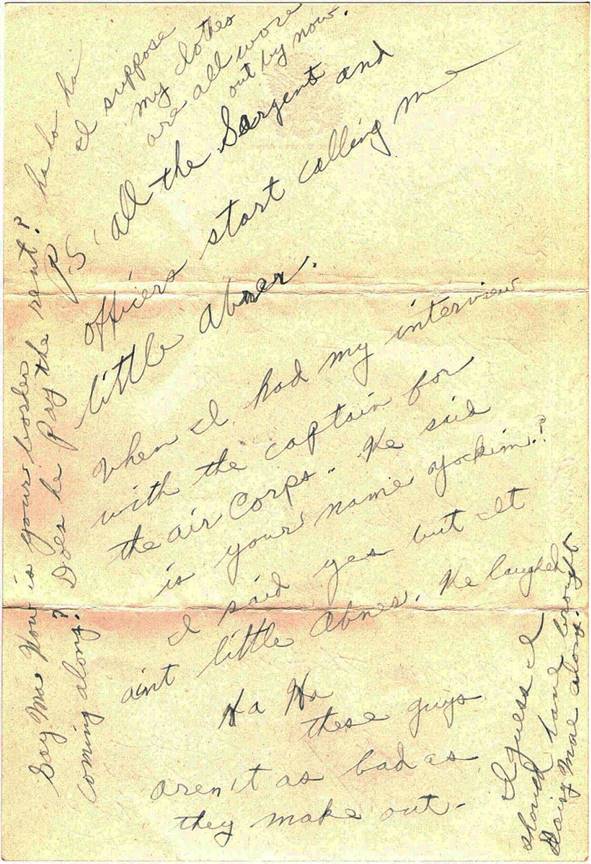 I suppose
my clothes
are all wore
out by now.
P.S. all the Sargent and
officers start calling me
little Abner.
When I had my interview
with the captain for
the air Corps.. He said
is your name yockim.?
I said yes but It
aint little Abner. He laughed
Ha Ha
these guys
aren't as bad as
they make out.
I guess I
should have brought
Daisy Mae along.
Say Ma How is your border
coming along? Does he Pay the rent? ha ha ha